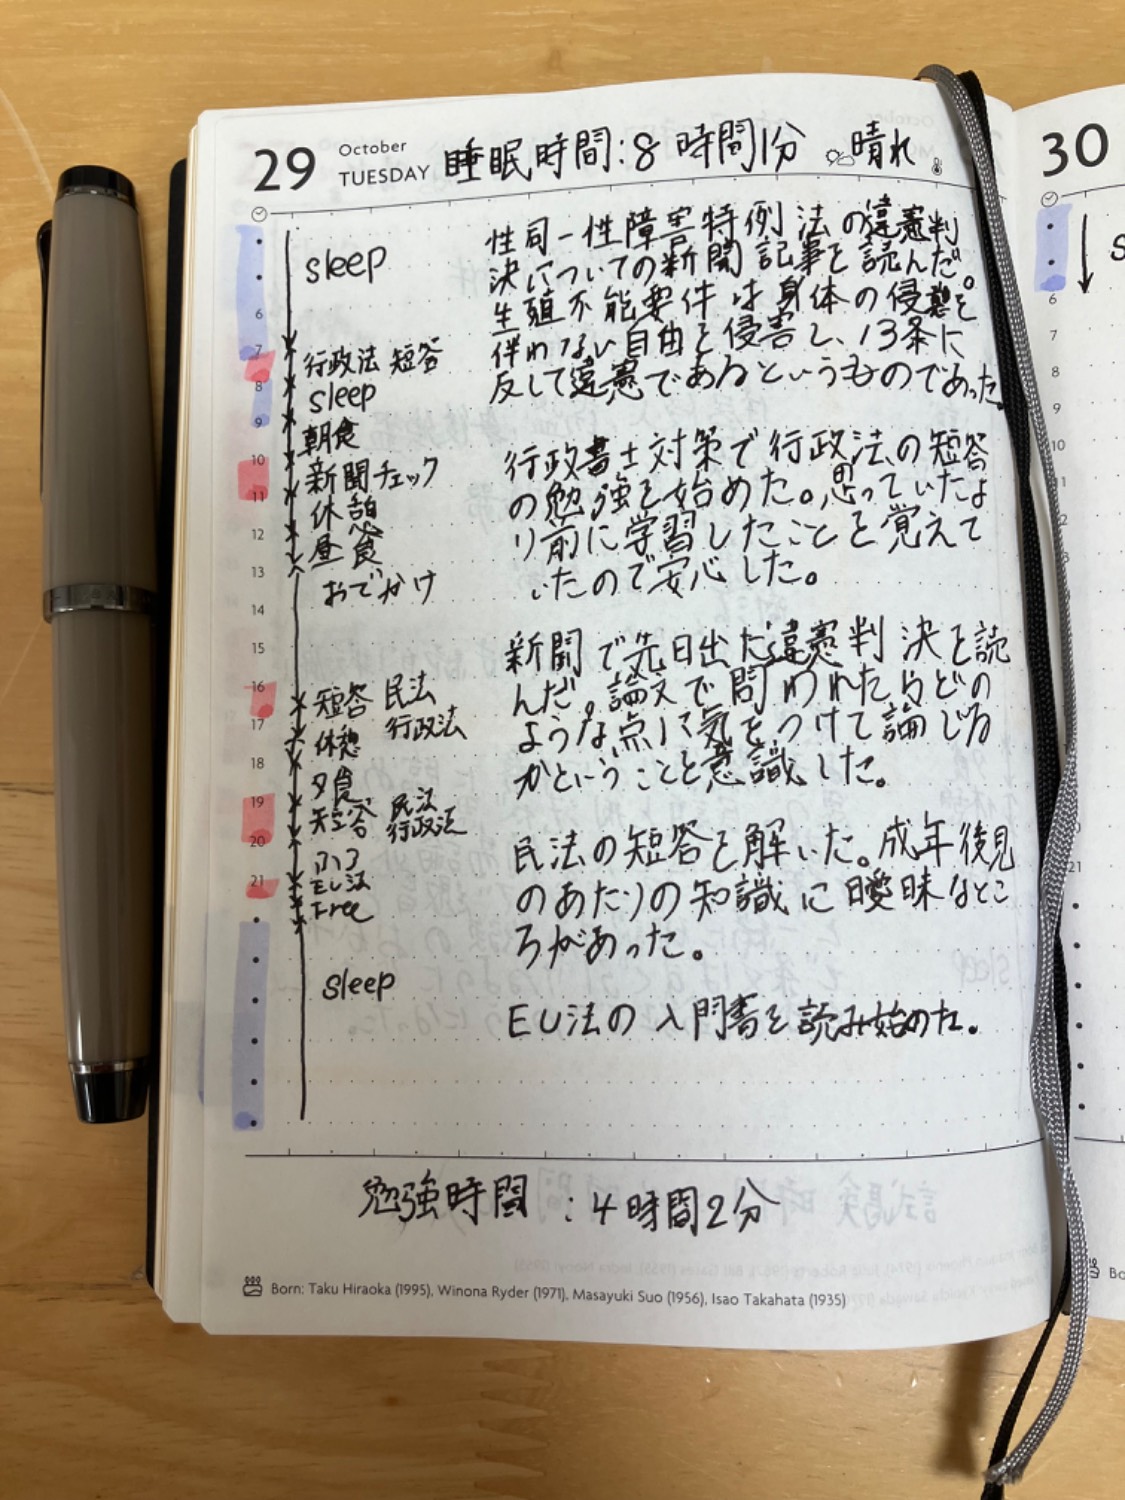 29 October TUESDAY 睡眠時間:8時間1分 晴れ
30
sleep
6
7
行政法 短答
8
sleep
9
朝食
10
新聞チェック
11
休憩
12
昼食
13
おでかけ
14
15
16
短答 民法
行政法
17
休憩
18
夕食
19
短答 民法
行政法
20
ふろ
21
EU法
Free
sleep
性同一性障害特例法の違憲判
決についての新聞記事を読んだ。
生殖不能要件は身体の侵襲を
伴わない自由を侵害し、13条に
反して違憲であるというものであった。
行政書士対策で行政法の短答
の勉強を始めた。思っていたよ
り前に学習したことを覚えて
いたので安心した。
新聞で先日出た違憲判決を読
んだ。論文で問われたらどの
ような点に気をつけて論じる
かということを意識した。
民法の短答を解いた。成年後見
のあたりの知識に曖昧なとこ
ろがあった。
EU法の入門書を読み始めた。
勉強時間:4時間2分
Born: Taku Hiraoka (1995), Winona Ryder (1971), Masayuki Suo (1956), Isao Takahata (1935)
6
9
10
11
21